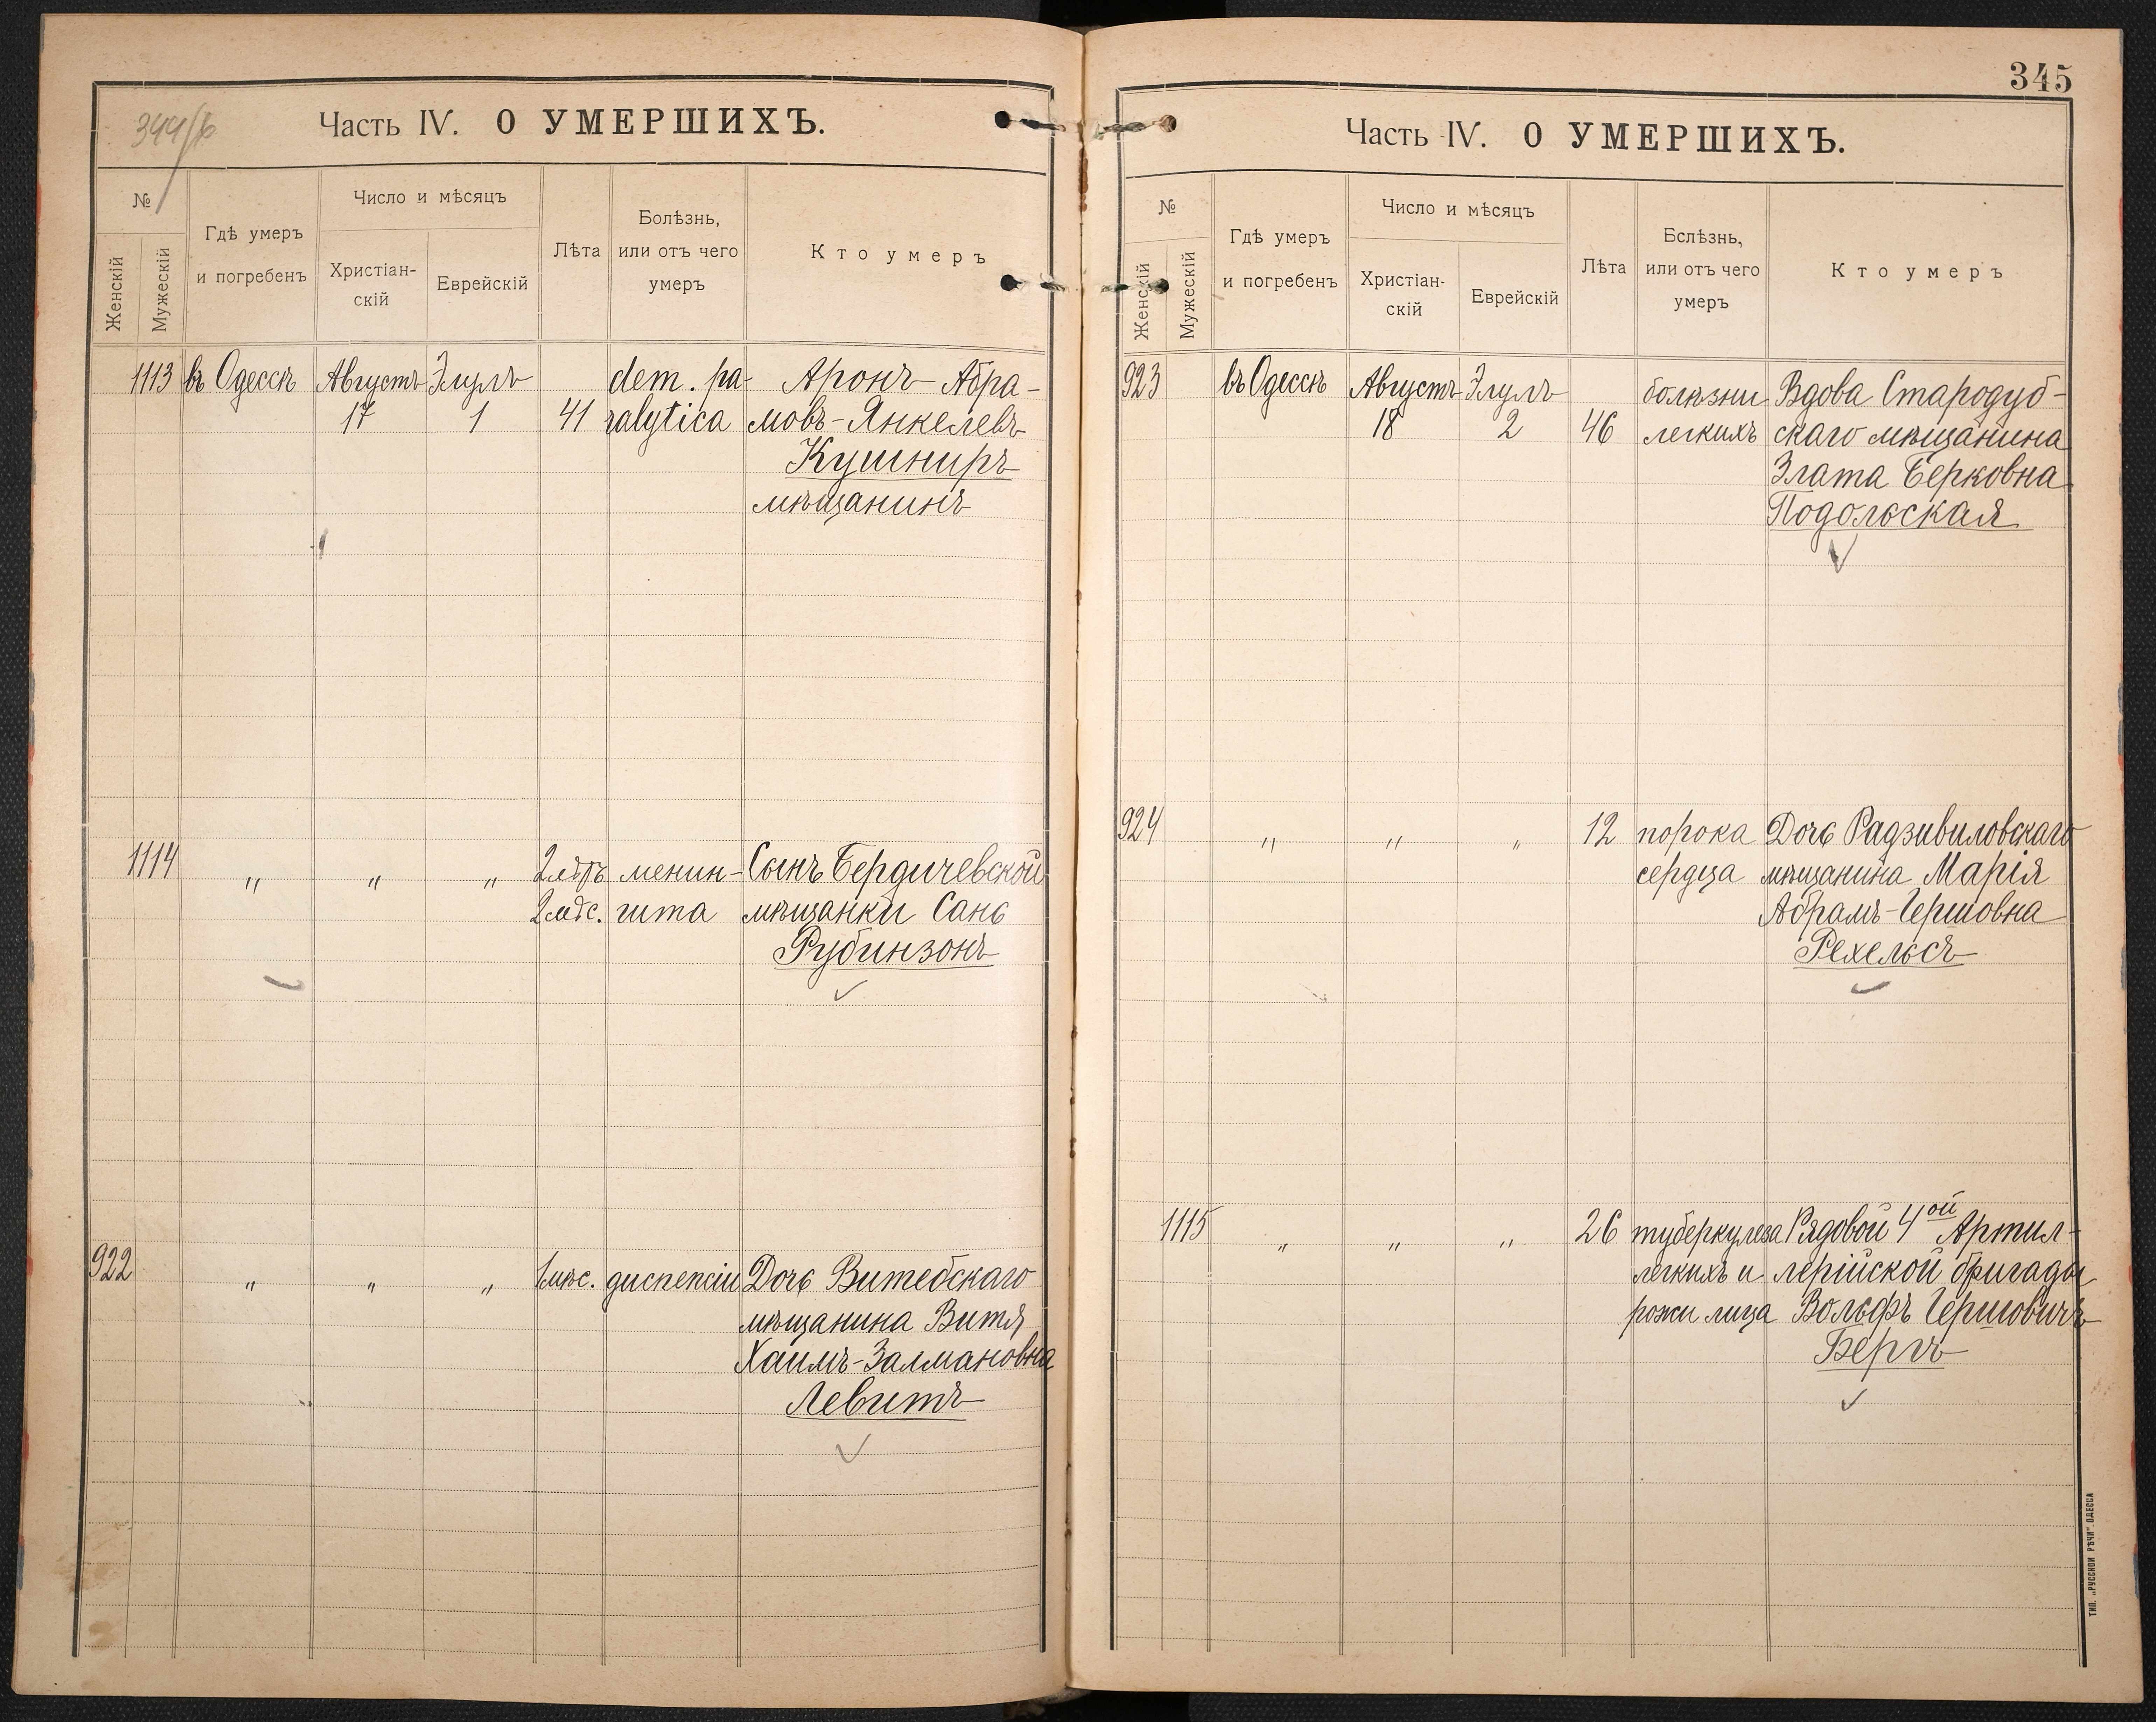 345
Часть IV. О УМЕРШИХЪ.
№
Женскій
Мужескій
Гдѣ умеръ
и погребенъ
Число и мѣсяцъ
Христіан-
скій
Еврейскій
Лѣта
Болѣзнь,
или отъ чего
умеръ
Кто умеръ
1113 въ Одессѣ Августъ Элулъ dem. pa- Аронъ-Абра-
17 1 41 ralytica мовъ-Янкелевъ
Кушниръ
мѣщанинъ
1114 " " " 2 менин- Сынъ Бердичевской
2 гита мѣщанки Сань
Рубинзонъ
922 " " " 1 мѣс. диспепсіи Дочь Витебскаго
мѣщанина Витя
Хаимъ-Залмановна
Левитъ
Часть IV. О УМЕРШИХЪ.
№
Женскій
Мужескій
Гдѣ умеръ
и погребенъ
Число и мѣсяцъ
Христіан-
скій
Еврейскій
Лѣта
Бслѣзнь,
или отъ чего
умеръ
Кто умеръ
923 въ Одессѣ Августъ Элулъ болѣзни Вдова Стародуб-
18 2 46 легкихъ скаго мѣщанина
Злата Берковна
Подольская
924 " " " 12 порока Дочь Радзивиловскаго
сердца мѣщанина Марія
Абрамъ-Гершовна
Рехельсъ
1115 " " " 26 туберкулеза Рядовой 4ой Артил-
легкихъ и лерійской бригады
рожи лица Вольфъ Гершовичъ
Бергъ
ТИП. „РУССКОЙ РѢЧИ" ОДЕССА